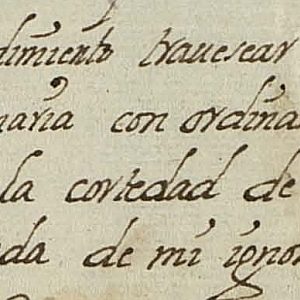 dimiento trauesear
naria con ordina
la cortedad de
da de mi ignor